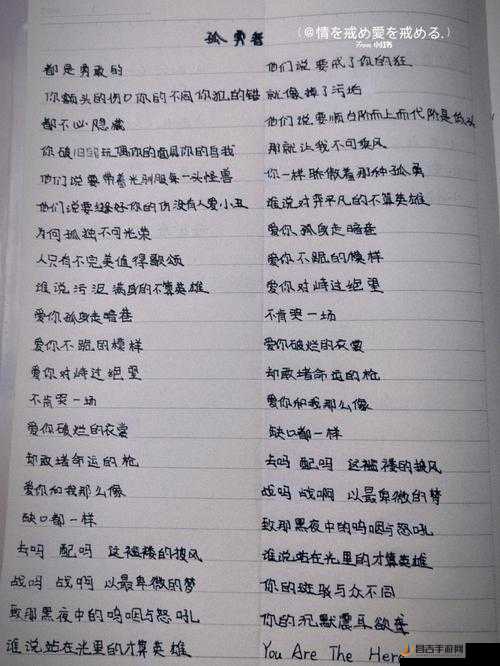 (@情を戒め愛を戒める.)
From 小鸡
孤勇者
都是勇敢的
你额头的伤口你的不同你犯的错
都不必隐藏
你破旧的玩偶你的面具你的自我
他们说要带着光驯服每一头怪兽
他们说要缝好你的伤没有人爱小丑
为何孤独不可光荣
人只有不完美值得歌颂
谁说污泥满身的不算英雄
爱你孤身走暗巷
爱你不跪的模样
爱你对峙过绝望
不肯哭一场
爱你破烂的衣裳
却敢堵命运的枪
爱你和我那么像
缺口都一样
去吗 配吗 这褴褛的披风
战吗 战啊 以最卑微的梦
致那黑夜中的呜咽与怒吼
谁说站在光里的才算英雄
他们说要戒了你的狂
就像擦了污垢
他们说要顺台阶而上而代阶是低头
那就让我不可乘风
你一样骄傲着那种孤勇
谁说对弈平凡的不算英雄
爱你孤身走暗巷
爱你不跪的模样
爱你对峙过绝望
不肯哭一场
爱你破烂的衣裳
却敢堵命运的枪
爱你和我那么像
缺口都一样
去吗 配吗 这褴褛的披风
战吗 战啊 以最卑微的梦
致那黑夜中的呜咽与怒吼
谁说站在光里的才算英雄
你的斑驳与众不同
你的沉默震耳欲聋
You Are The Hero
昌吉手游网